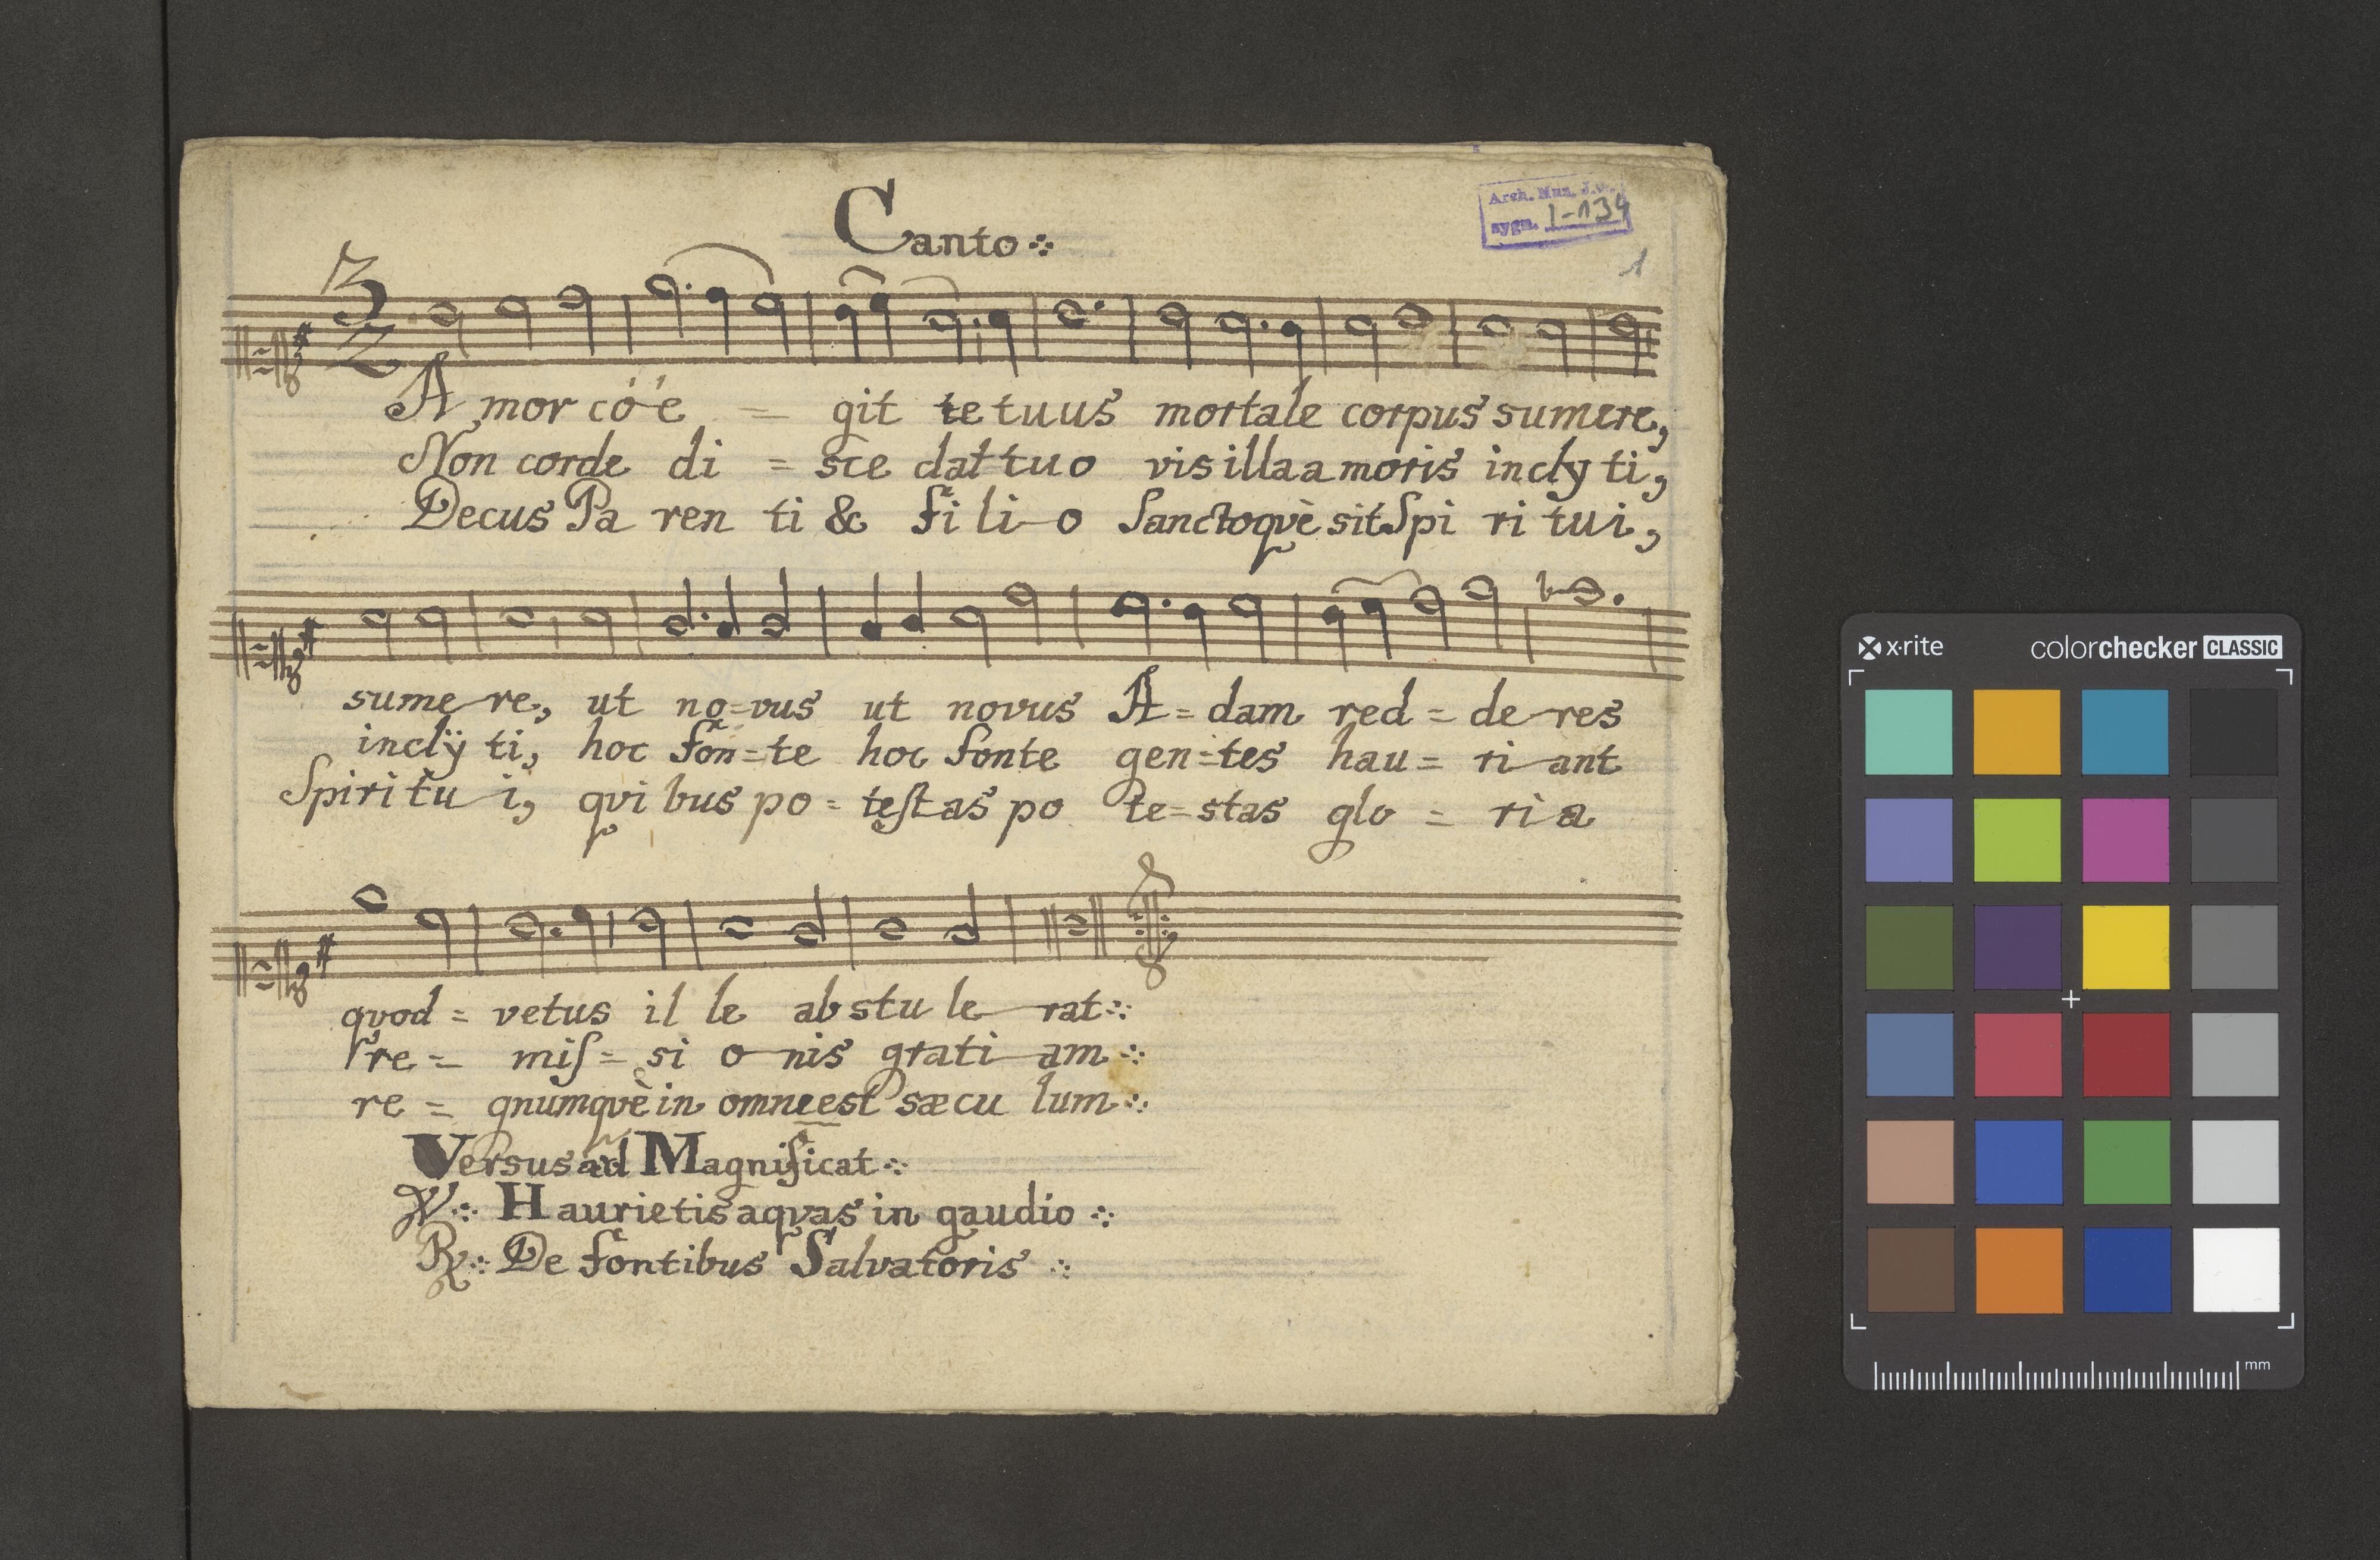 Canto
Arch. Mus. J.G.
sygn. I-134
1
3
2
Amor cóé = git te tuus mortale corpus sumere,
Non corde di = sce dat tuo vis illa amoris inclyti,
Decus Pa ren ti & fi li o Sanctoqvè sit Spi ri tui,
sume re, ut no=vus ut novus A=dam red = de res
inclÿ ti, hoc fon=te hoc fonte gen=tes hau = ri ant
Spiri tu i, qvi bus po = testas po te=stas glo = ri a
qvod = vetus il le ab stu le rat
re = miſ= si o nis grati am
re = gnumqvè in omne est sæcu lum
Versus ad Magnificat
V. Haurietis aqvas in gaudio
R. De fontibus Salvatoris
x·rite
colorchecker CLASSIC
mm